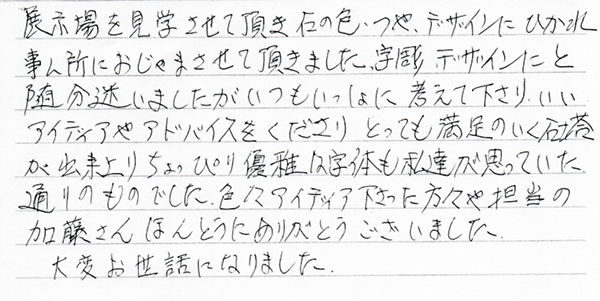 展示場を見学させて頂き石の色、つや、デザインにひかれ
事ム所におじゃまさせて頂きました、字彫、デザインにと
随分迷いましたがいつもいっしょに考えて下さり、いい
アイディアやアドバイスをくださり とっても満足のいく石塔
が出来上りちょっぴり優雅な字体も私達が思っていた
通りのものでした。色々アイディア下さった方々や担当の
加藤さん ほんとうにありがとう ございました。
大変お世話になりました。